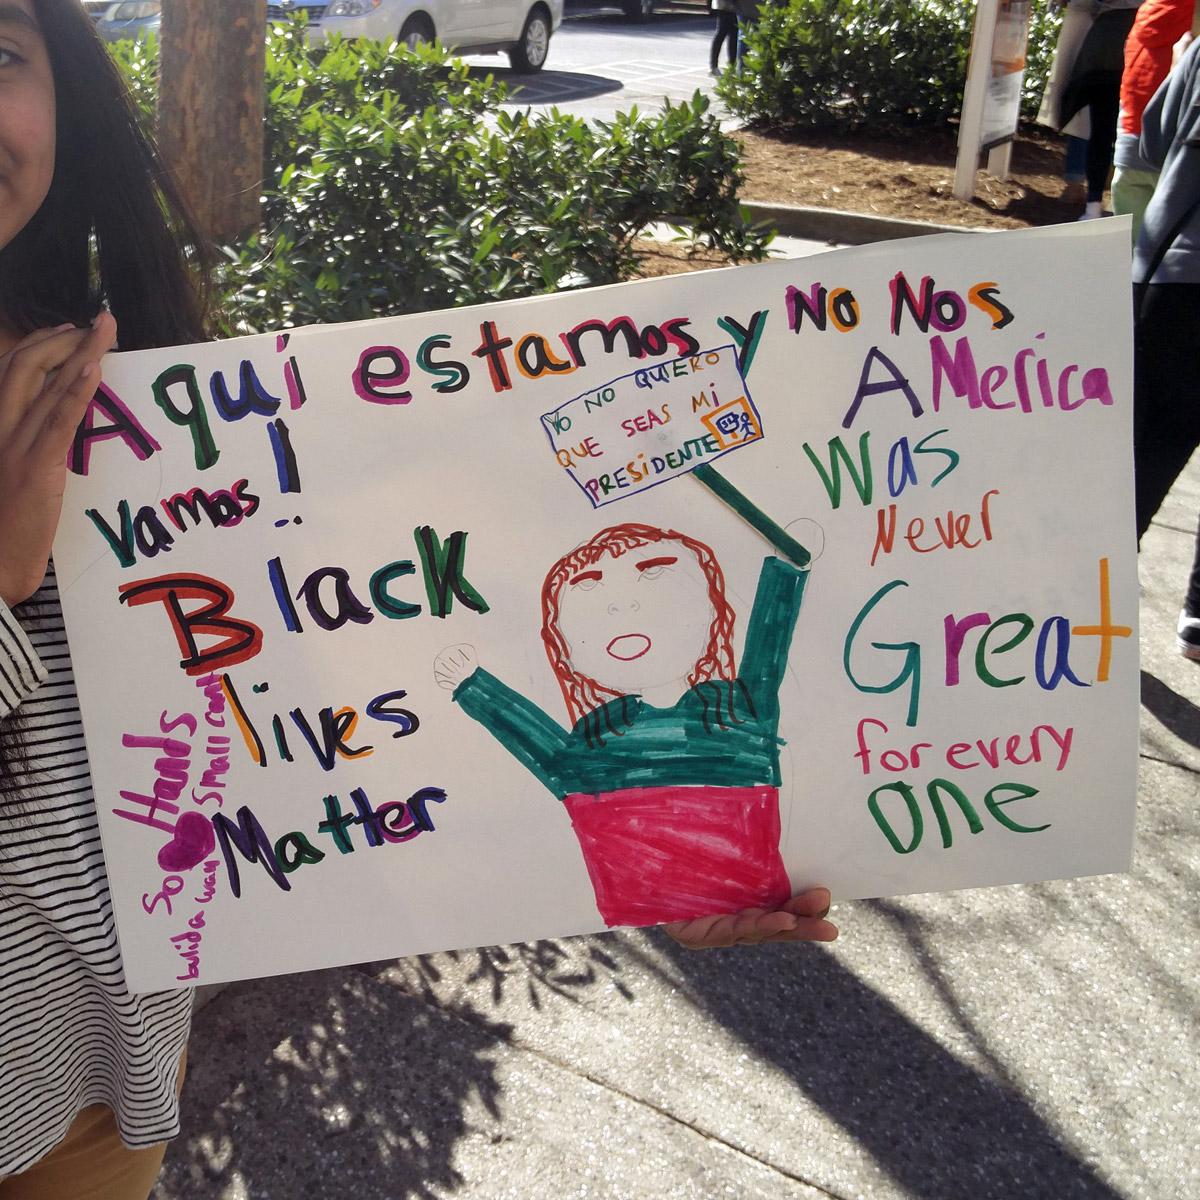 Aquí estamos y No Nos
Vamos!
Black
lives
Matter
YO NO QUIERO
QUE SEAS MI
PRESIDENTE
AMerica
Was
Never
Great
for every
one
So Hands
Small cant
bulid a wall